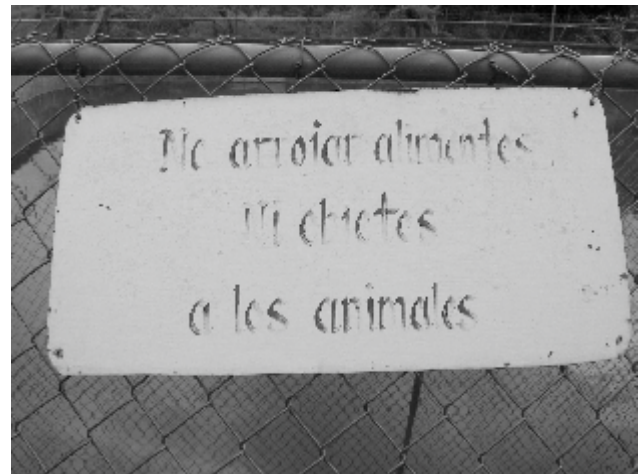 No arrojar alimentos
Ni objetos
a los animales